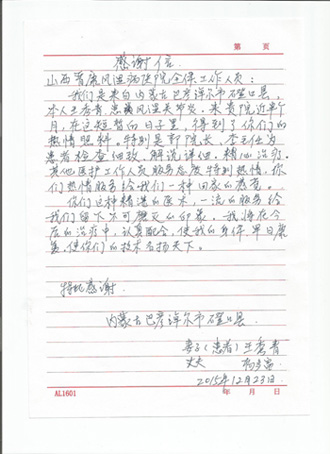 第 页
感谢信
山西省康风湿病医院全体工作人员:
我们是来自内蒙古巴彦淖尔市磴口县,
本人王秀青,患风湿类市友。来贵院近半个
月,在这短暂的日子里,得到了你们的
热情照料。特别是郭院长、李主任为
患者检查细致,解说详细。精心治疗。
其他医护工作人员服务态度特别热情。你
们热情服务给我们一种回家的感觉。
你们这种精湛的医术,一流的服务给
我们留下不可磨灭的印象。我将在今
后的治疗中,认真配合,使我的身体早日康
复,使你们的技术名扬天下。
特此感谢.
内蒙古巴彦淖尔市磴口县.
妻子(患者)王秀青
丈夫
2015年12月23日.
AL1601
年 月 日